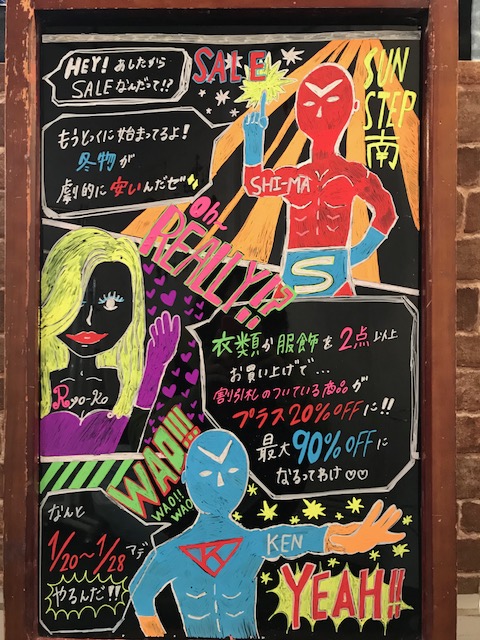 HEY! あしたから
SALEなんだって!?
SALE
SUN
STEP
南
もうとっくに始まってるよ!
冬物が
劇的に安いんだぜ
SHI-MA
S
Oh
REALLY!?!!
衣類か服飾を2点以上
お買い上げで...
割引札のついている商品が
プラス20%OFFに!!
最大90%OFFに
なるってわけ♡♡
Ryo-Ko
WAO!!!
WAO!!
WAO
なんと
1/20~1/28マデ
やるんだ!!
K
KEN
YEAH!!